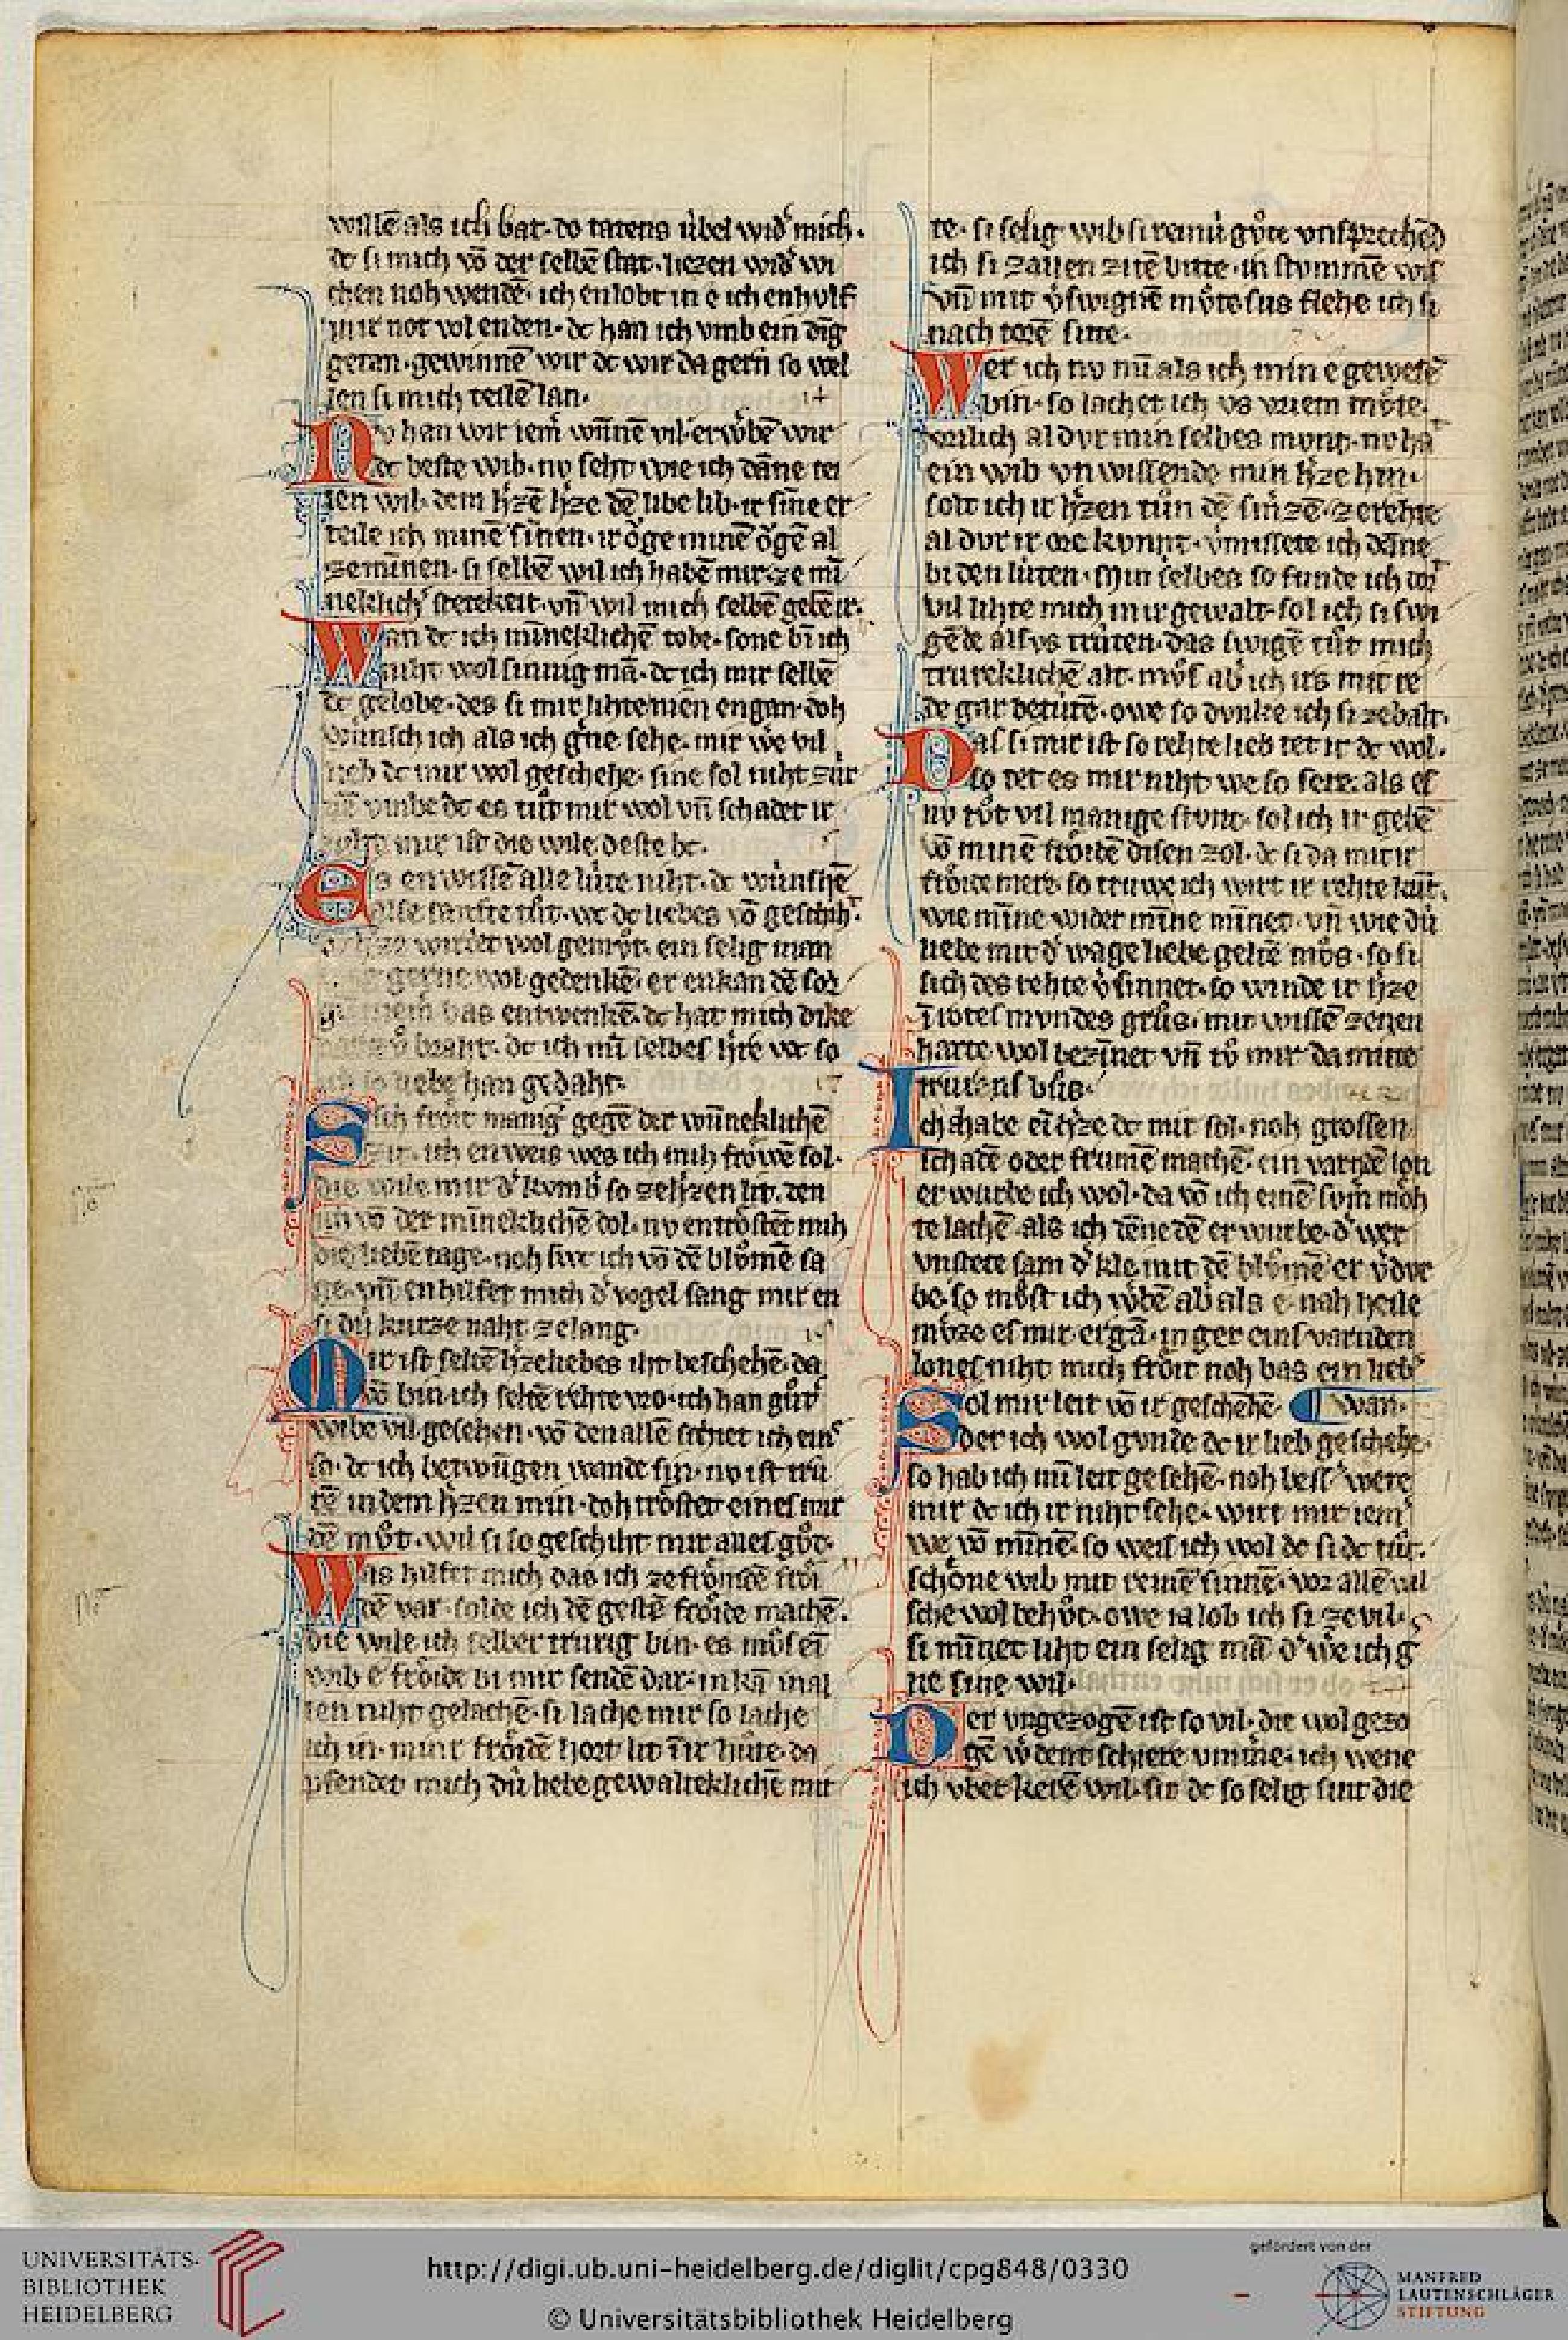 willē als ich bat· do tatens úbel wid̾ mich·
dc si mich vō der selbē stat· liezen wid̾ wi
chen noh wendē· ich enlobt in e ich enhulf
in ir not vol enden· dc han ich vmb ein dīg
getan· gewinnē wir dc wir da gern so wel
len si mich teilē lan·
N v han wir iem̾ wn̄ne vil· erwͦbē wir
dc beste wib· nv seht wie ich dāne tei
len wil· dem h̾zē h̾ze dē libe lib· ir sīne er
teile ich minē sinen· ir oͮge minē oͮgē al
ze minnen· si selbē wil ich habē mir· ze mī
neklich̾ sterekeit· vn̄ wil mich selbē gebē ir·
W an dc ich mīneklichē tobe· sone bī ich
niht wol sinnig mā· dc ich mir selbē
dc gelobe· des si mir lihte nien engan· doh
wúnsch ich als ich g̾ne sehe· mir we vil
lieb dc mir wol geschehe· sine sol niht zúr
nē vmbe dc es tuͦt mir wol vn̄ schadet ir
niht· mir ist die wile deste bc·
E s en wissē alle lúte niht· dc wúnschē
alse sanfte tuͦt· wc dc liebes vō geschiht·
dc h̾ze wirdet wol gemuͦt· ein selig man
gerne wol gedenkē· er enkan dē sor
gē niem̾ bas entwenkē· dc hat mich dike
braht· dc ich mī selbes h̾ze vor so
ich so liebe han gedaht·
S ich froͤit manig̾ gegē der wn̄neklichē
zit· ich en weis wes ich mih froͤwē sol·
die wile mir d̾ kvmb̾ so ze h̾zen lit· den
ich vō der mīneklichē dol· nv entroͤstēt mih
die liebē tage· noh swc ich vō dē bluͦmē sa
ge· vn̄ en hilfet mich d̾ vogel sang mir en
si dú kurze naht ze lang·
M ir ist seltē h̾zeliebes iht beschehē· da
vō bin ich seltē rehte vro· ich han guͦt̾
wibe vil gesehen· vō den allē schiet ich eins
so· dc ich betwūgen wande sin· nv ist trú
rē in dem h̾zen min· doh troͤstet eines mir
dē muͦt· wil si so geschiht mir alles guͦt·
W as hilfet mich das ich ze froͤmdē froͤi
dē var· solde ich dē gestē froͤide machē·
die wile ich selber trurig bin· es muͦs eī
wib e froͤide bi mir sendē dar· in kā in al
len niht gelachē· si lache mir so lache
ich in· minr froͤidē hort lit in ir huͦte· da
pfendet mich dú liebe gewalteklichē mit
te· si selig wib si reinú guͦte vnsprechēd̾
ich si zallen zitē bitte· in stvmmē wis
vn̄ mit v̾swignē muͦte sus flehe ich si
nach torē sitte·
W er ich nv nū als ich min e gewesē
bin· so lachet ich vs vriem muͦte·
heilich al dvr min selbes mvnt· nv hat
ein wib vnwissende min h̾ze hin·
solt ich ir h̾zen tuͦn dē sin zē· ze rehte
al dvr ir ore kvnnt· v̾missete ich dāne
bi den lúten· min selbes so funde ich dort
vil lihte mich in ir gewalt· sol ich si swi
gēde alsvs trúten· das swigē tuͦt mich
trureklichē alt· muͦs ab̾ ich irs mit re
de gar betútē· owe so dvnke ich si zebalt·
D as si mir ist so rehte lieb tet ir dc wol·
so tet es mir niht we so sere· als es
nv tuͦt vil manige stvnt· sol ich ir gebē
vō minē froͤidē disen zol· dc si da mit ir
froͤide mere· so truwe ich wirt ir rehte kūt·
wie mīne wider mīne mīnet· vn̄ wie dú
liebe mit d̾ wage liebe geltē muͦs· so si
sich des rehte v̾sinnet· so winde ir h̾ze
ī rotes mvndes gruͦs· mir wissē zenen
harte wol bezīnet vn̄ tuͦ mir da mitte
trurens buͦs·
I ch habe eī h̾ze dc mir sol· noh grossen
schadē oder frumē machē· ein varndē lon
er wurbe ich wol· da vō ich einē svm̾ moͤh
te lachē· als ich dēne dē er wurbe· d̾ wer
vnstete sam d̾ kle mit dē bluͦmē er v̾dvr
be· so muͦst ich w̾bē ab als e· nah heile
muͦze es mir· ergā· in ger eins varnden
lones niht mich froͤit noh bas ein lieb̾
S ol mir leit vō ir geschehē· ¶ wan·
der ich wol gvnde dc ir lieb geschehe·
so hab ich mī leit gesehē· noh bess̾ were
mir dc ich ir niht sehe· wirt mir iem̾
we vō mīnē· so weis ich wol dc si dc tuͦt·
schoͤne wib mit reinē sinnē· vor allē val
sche wol behuͦt· owe ia lob ich si ze vil·
si mīnet liht ein selig mā· d̾ we ich g̾
ne sine wil·
D er vngezogē ist so vil· die wol gezo
gē w̾dent schiere vnmēre· ich wene
ich vber kerē wil· sit dc so selig sint die
UNIVERSITÄTS-
BIBLIOTHEK
HEIDELBERG
http://digi.ub.uni-heidelberg.de/diglit/cpg848/0330
© Universitätsbibliothek Heidelberg
gefördert von der
MANFRED
LAUTENSCHLÄGER
STIFTUNG